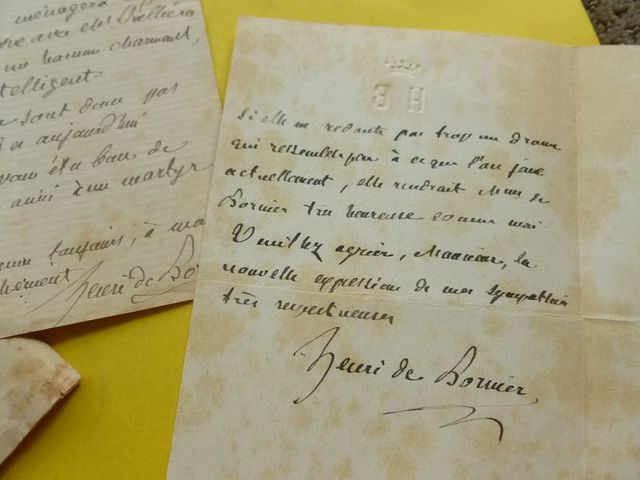 ménagera
un homme charmant,
intelligent
sont donc pas
a aujourd'hui
ban de
ainsi à un martyr
toujours, à ma
Henri de Bo
H B
Si elle ne redoute pas trop un drame
qui ressemble peu à ce que l'on joue
actuellement, elle rendrait Mme de
Bornier très heureuse comme moi.
Veuillez agréer, Monsieur, la
nouvelle expression de mes sympathies
très respectueuses
Henri de Bornier